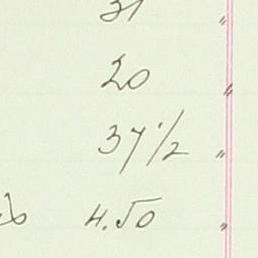 31 "
20 "
37 1/2 "
4.50 "